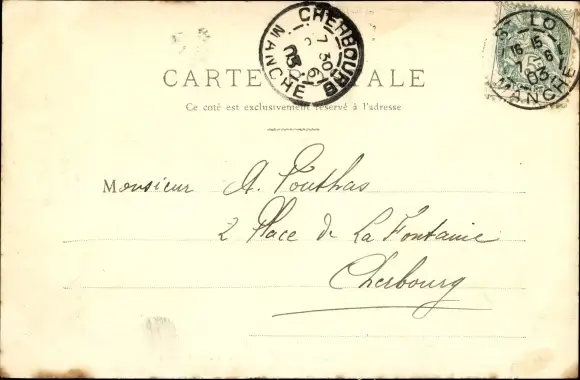 CHERBOURG
7 30
6
03
MANCHE
ST LO
15 15
6
03
MANCHE
CARTE POSTALE
Ce coté est exclusivement réservé à l'adresse
Monsieur A. Pouthas
2 Place de La Fontaine
Cherbourg